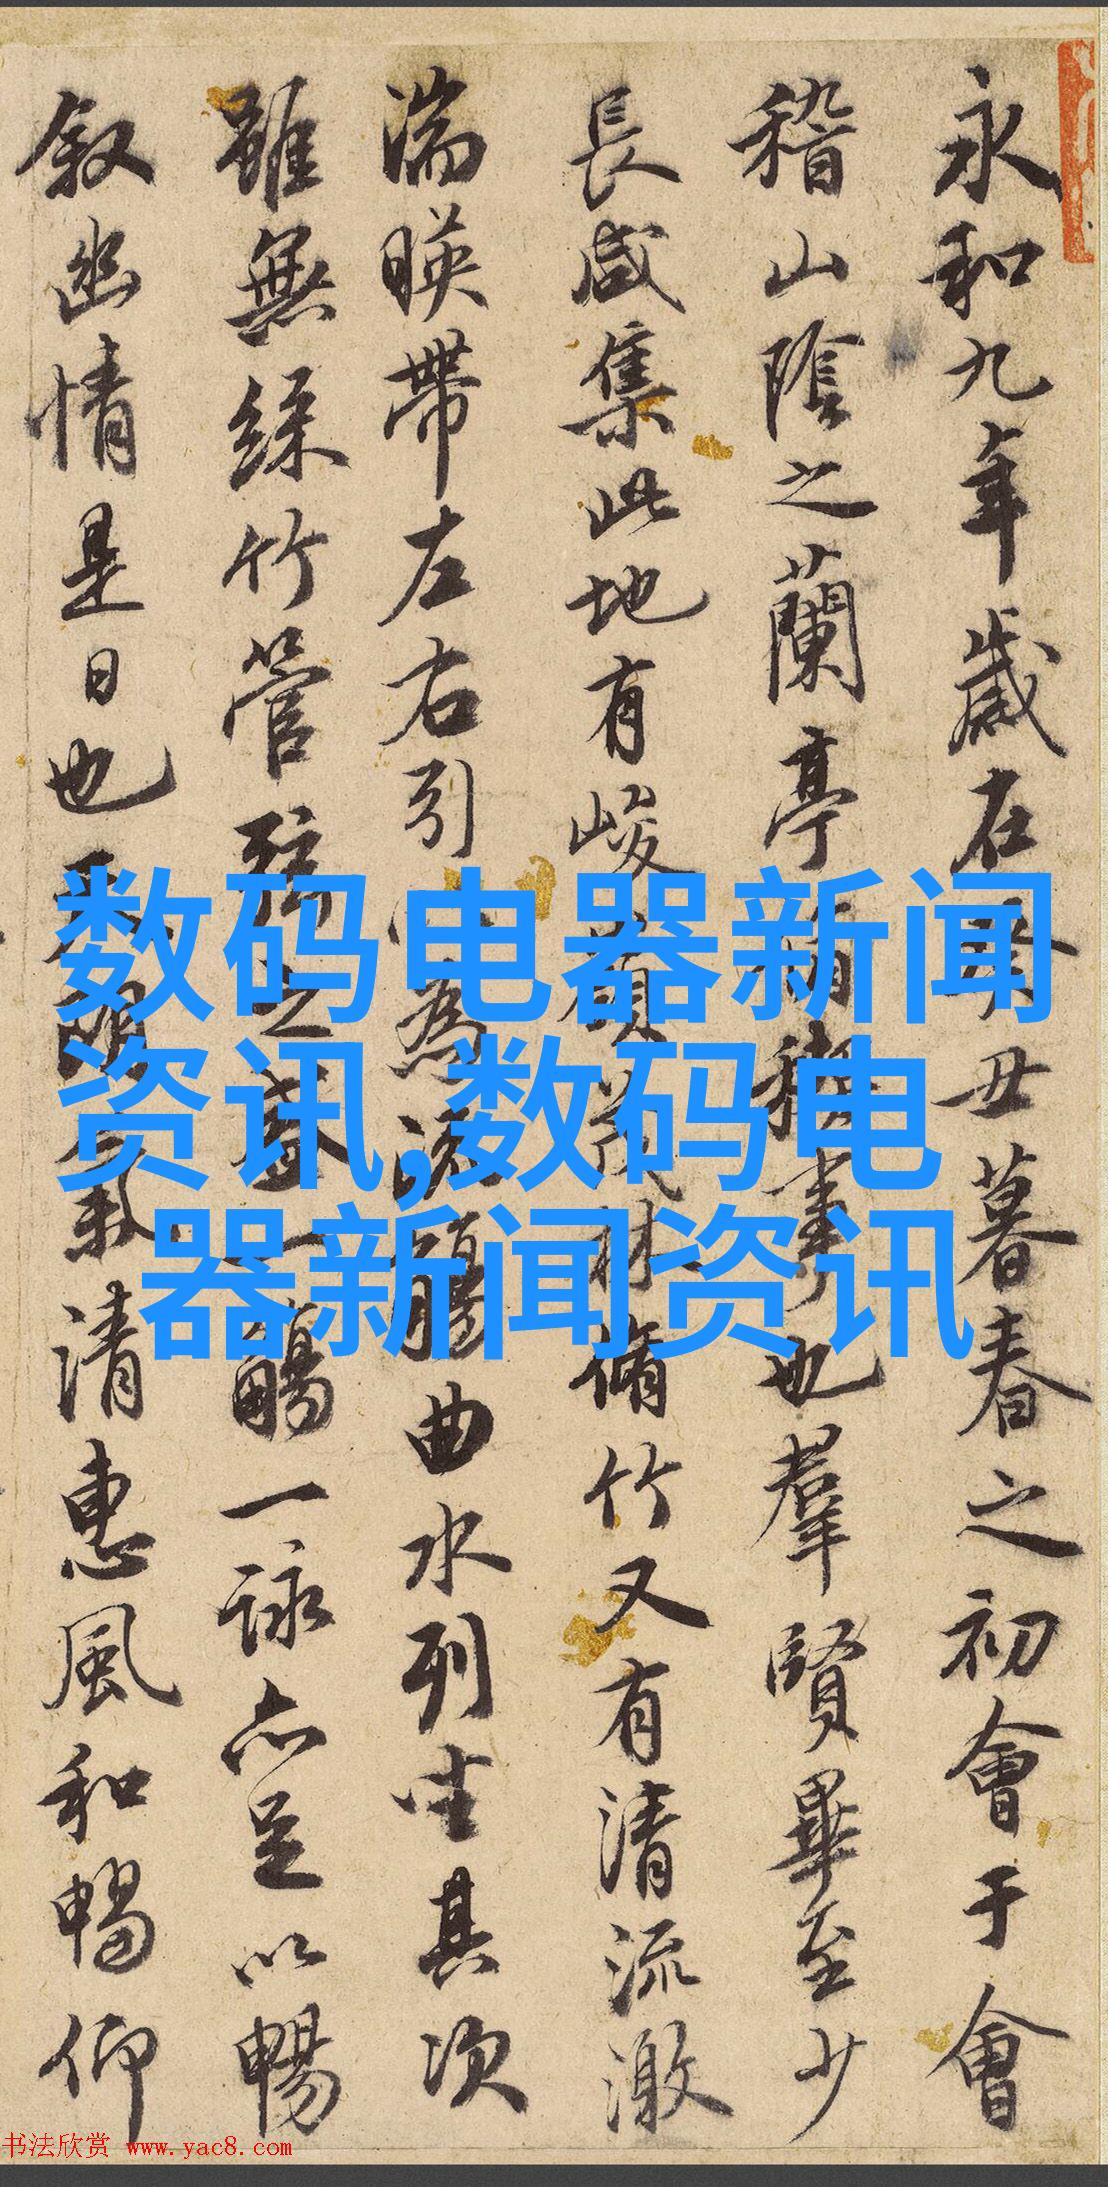 永和九年歲在癸丑暮春之初會于會
稽山陰之蘭亭脩稧事也羣賢畢至少
長咸集此地有峻領茂林脩竹又有清流激
湍暎帶左右引以為流觴曲水列坐其次
雖無絲竹管弦之盛一觴一詠亦足以暢
叙幽情是日也天朗氣清惠風和暢仰
数码电器新闻
资讯,数码电
器新闻资讯
书法欣赏 www.yac8.com